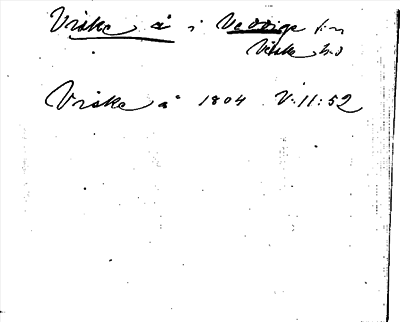 Viske å i Veddige sn
Viske hd
Viske å 1804 V:11:52